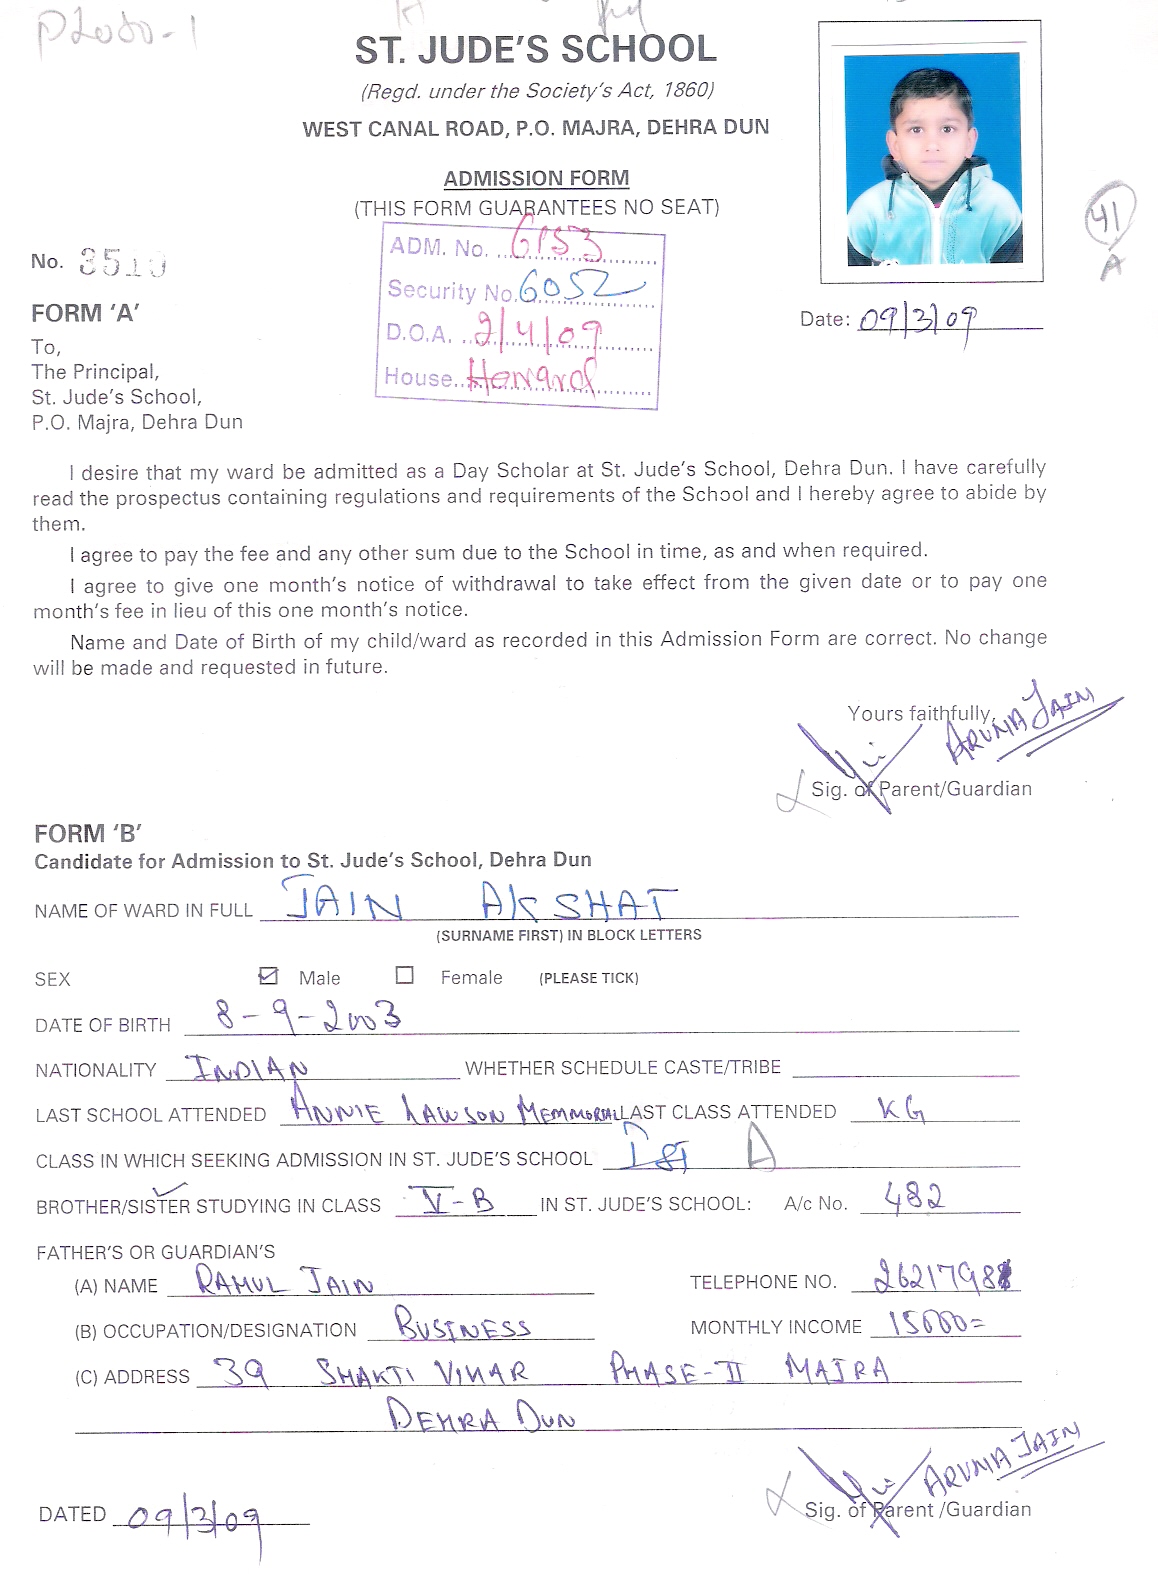 ST. JUDE'S SCHOOL
(Regd. under the Society's Act, 1860)
WEST CANAL ROAD, P.O. MAJRA, DEHRA DUN
ADMISSION FORM
(THIS FORM GUARANTEES NO SEAT)
41
A
No. 3510
ADM. No. 6153
Security No. 6052
D.O.A. 2/4/09
House Howard
Date: 09/3/09
FORM 'A'
To,
The Principal,
St. Jude's School,
P.O. Majra, Dehra Dun
I desire that my ward be admitted as a Day Scholar at St. Jude's School, Dehra Dun. I have carefully
read the prospectus containing regulations and requirements of the School and I hereby agree to abide by
them.
I agree to pay the fee and any other sum due to the School in time, as and when required.
I agree to give one month's notice of withdrawal to take effect from the given date or to pay one
month's fee in lieu of this one month's notice.
Name and Date of Birth of my child/ward as recorded in this Admission Form are correct. No change
will be made and requested in future.
Yours faithfully,
ARUNA JAIN
Sig. of Parent/Guardian
FORM 'B'
Candidate for Admission to St. Jude's School, Dehra Dun
NAME OF WARD IN FULL JAIN AKSHAT
(SURNAME FIRST) IN BLOCK LETTERS
SEX Male Female (PLEASE TICK)
DATE OF BIRTH 8-9-2003
NATIONALITY INDIAN WHETHER SCHEDULE CASTE/TRIBE
LAST SCHOOL ATTENDED ANNIE LAWSON MEMMORIAL LAST CLASS ATTENDED KG
CLASS IN WHICH SEEKING ADMISSION IN ST. JUDE'S SCHOOL Ist A
BROTHER/SISTER STUDYING IN CLASS V-B IN ST. JUDE'S SCHOOL: A/c No. 482
FATHER'S OR GUARDIAN'S
(A) NAME RAHUL JAIN TELEPHONE NO. 2621798
(B) OCCUPATION/DESIGNATION BUSINESS MONTHLY INCOME 15000=
(C) ADDRESS 39 SHAKTI VIHAR PHASE-II MAJRA
DEHRA DUN
ARUNA JAIN
DATED 09/3/09 Sig. of Parent /Guardian